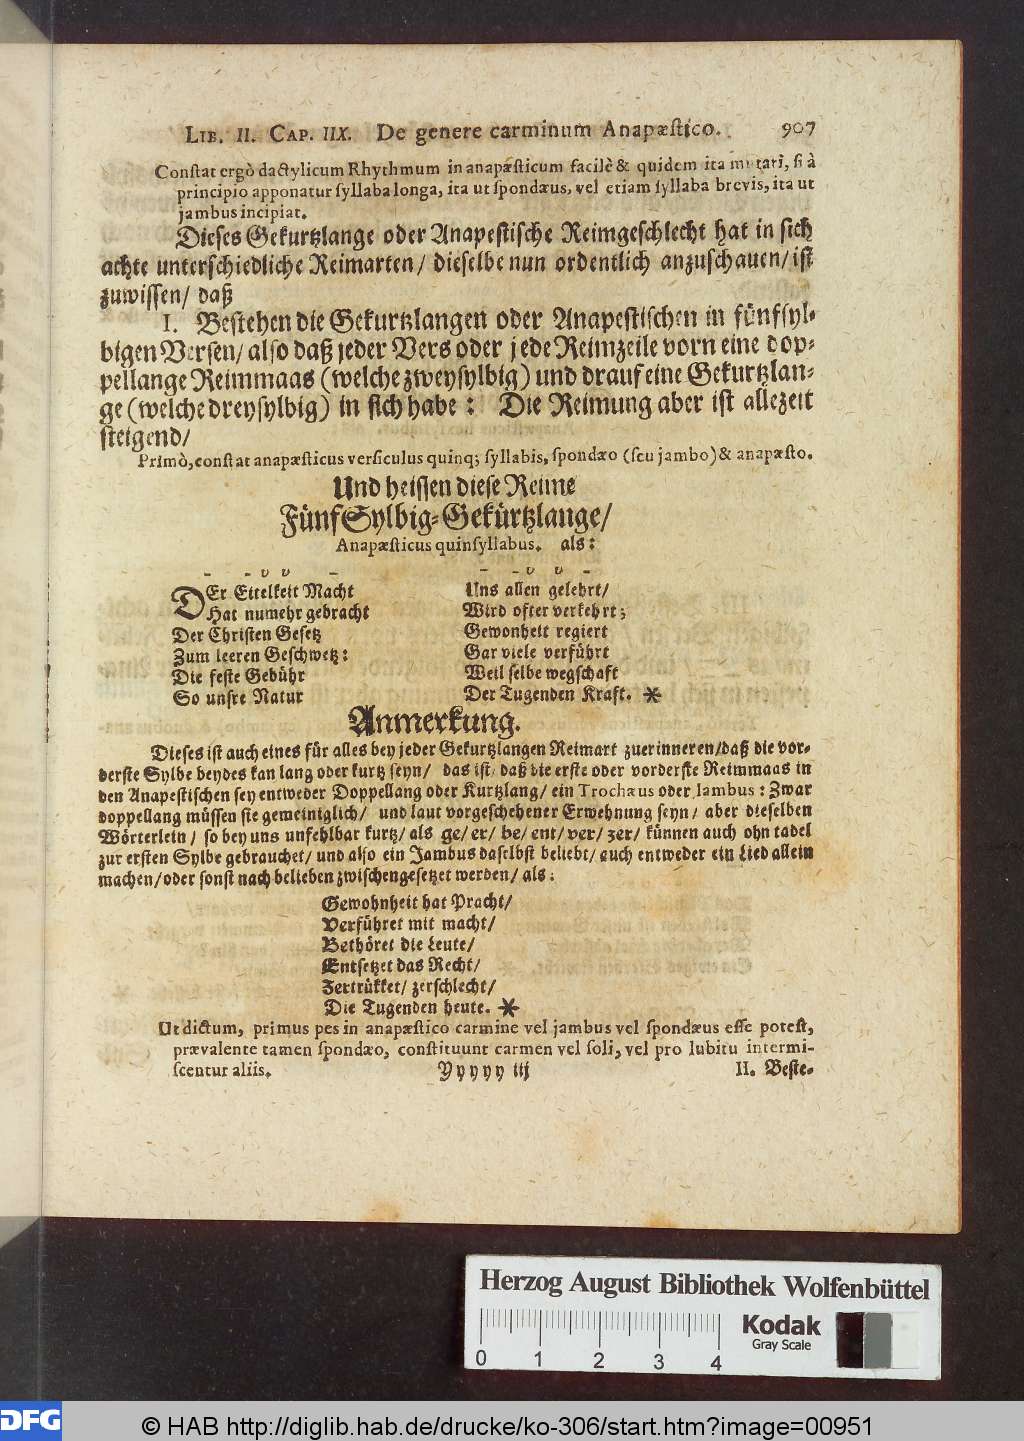 LIB. II. CAP. IIX. De genere carminum Anapæstico. 907
Constat ergò dactylicum Rhythmum in anapæsticum facilè & quidem ita mutari, si à
principio apponatur syllaba longa, ita ut spondæus, vel etiam syllaba brevis, ita ut
jambus incipiat.
Dieses Gekurtzlange oder Anapestische Reimgeschlecht hat in sich
achte unterschiedliche Reimarten/ dieselbe nun ordentlich anzuschauen/ ist
zuwissen/ daß
I. Bestehen die Gekurtzlangen oder Anapestischen in fünfsyl-
bigen Versen/ also daß jeder Vers oder jede Reimzeile vorn eine dop-
pellange Reimmaas (welche zweysylbig) und drauf eine Gekurtzlan-
ge (welche dreysylbig) in sich habe: Die Reimung aber ist allezeit
steigend/
Primò, constat anapæsticus versiculus quinq; syllabis, spondæo (seu jambo) & anapæsto.
Und heissen diese Reime
FünfSylbig-Gekürtzlange/
Anapæsticus quinsyllabus. als:
– – υ υ –
DEr Eitelkeit Macht
Hat numehr gebracht
Der Christen Gesetz
Zum leeren Geschwetz:
Die feste Gebühr
So unsre Natur
– – υ υ –
Uns allen gelehrt/
Wird ofter verkehrt;
Gewonheit regiert
Gar viele verführt
Weil selbe wegschaft
Der Tugenden Kraft. *
Anmerkung.
Dieses ist auch eines für alles bey jeder Gekurtzlangen Reimart zuerinneren/ daß die vor-
derste Sylbe beydes kan lang oder kurtz seyn/ das ist/ daß die erste oder vorderste Reimmaas in
den Anapestischen sey entweder Doppellang oder Kurtzlang/ ein Trochæus oder Iambus: Zwar
doppellang müssen sie gemeiniglich/ und laut vorgeschehener Erwehnung seyn/ aber dieselben
Wörterlein/ so bey uns unfehlbar kurtz/ als ge/ er/ be/ ent/ ver/ zer/ künnen auch ohn tadel
zur ersten Sylbe gebrauchet/ und also ein Jambus daselbst beliebt/ auch entweder ein Lied allein
machen/ oder sonst nach belieben zwischengesetzet werden/ als:
Gewohnheit hat Pracht/
Verführet mit macht/
Bethöret die Leute/
Entsetzet das Recht/
Zertrükket/ zerschlecht/
Die Tugenden heute. *
Ut dictum, primus pes in anapæstico carmine vel jambus vel spondæus esse potest,
prævalente tamen spondæo, constituunt carmen vel soli, vel pro lubitu intermi-
scentur aliis. Yyyyy iij II. Beste-
Herzog August Bibliothek Wolfenbüttel
Kodak
Gray Scale
0 1 2 3 4
DFG
© HAB http://diglib.hab.de/drucke/ko-306/start.htm?image=00951